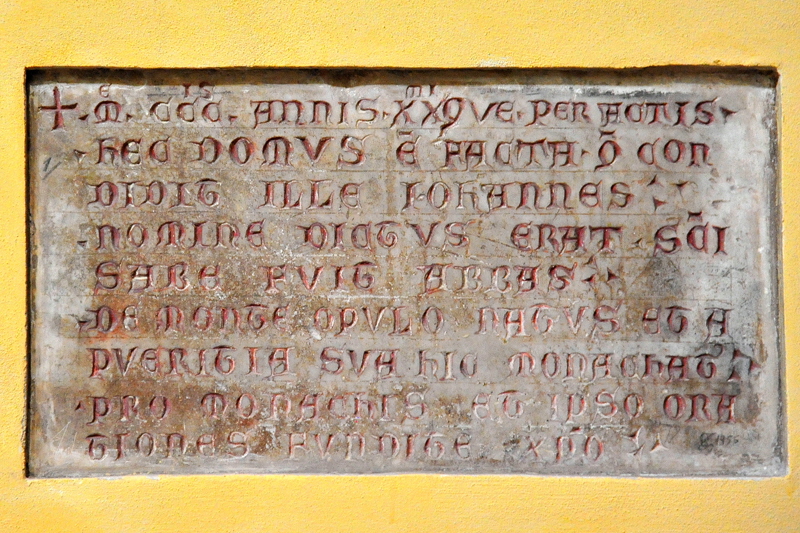 + M̅ · CCC · ANNIS · XX9VE · PER ACTIS ·
HEC DOMVS Ē FACTA · Q̄ CON
DIDIT ILLE IOHANNES
NOMINE DICTVS ERAT · SC̄I
SABE FUIT ABBAS
DE MONTE OPVLO NATVS ET A
PVERITIA SVA HIC MONACHAT
PRO MONACHIS ET IPSO ORA
TIONES FUNDITE XP̄O